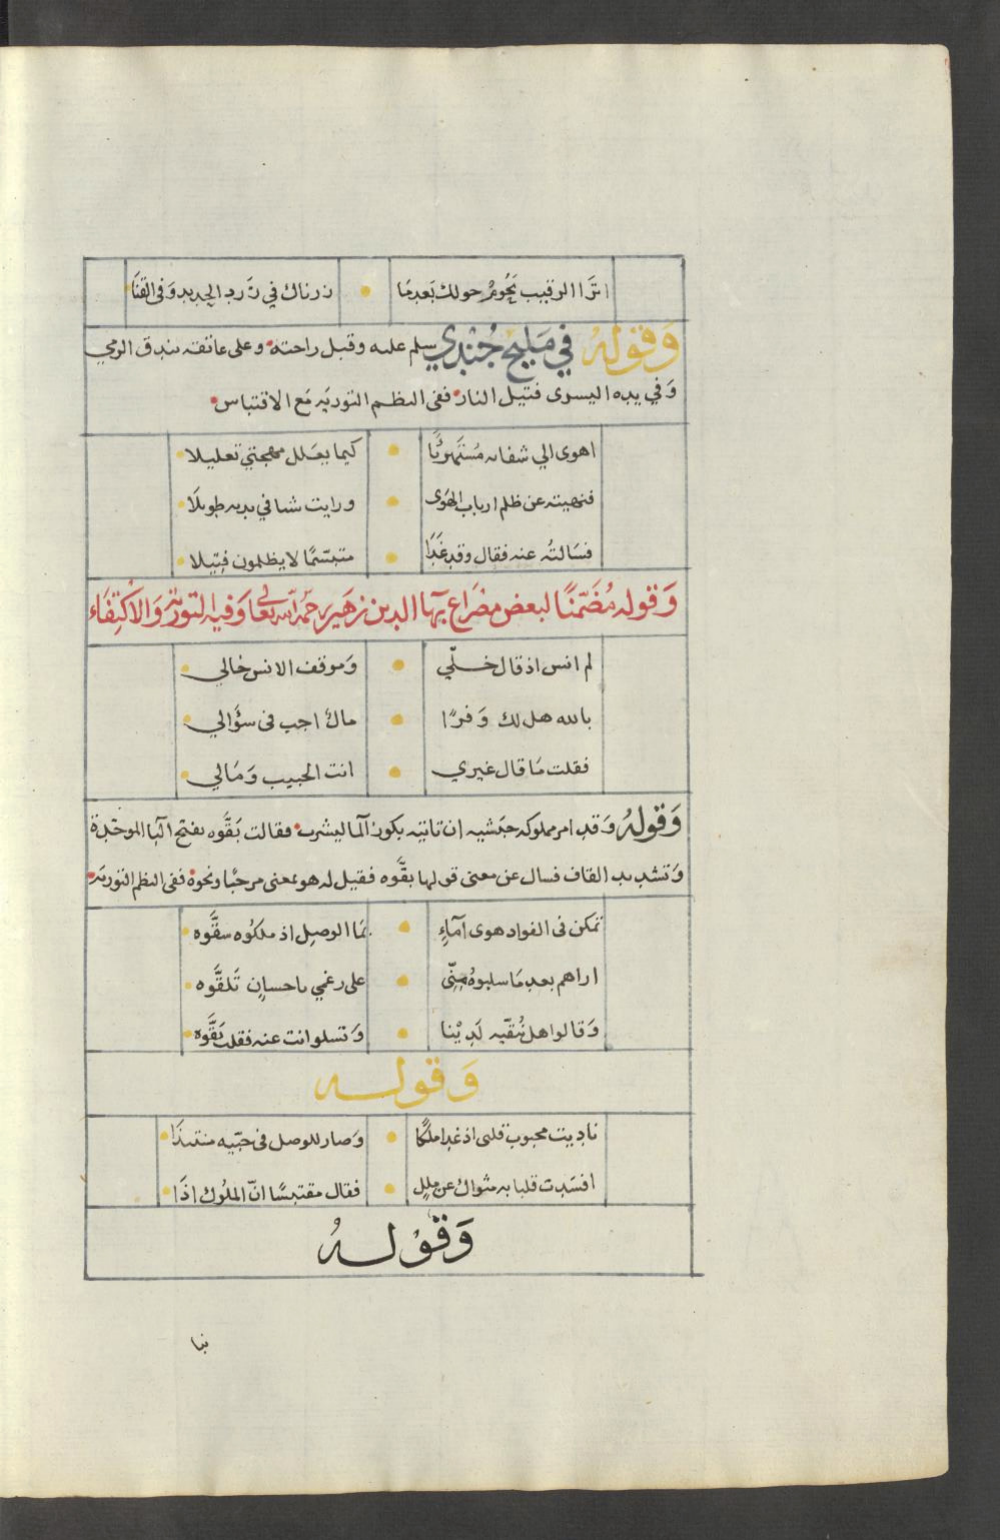 اترا الرقيب يحوم حولك بعدما زرناك في زرد الحديد وفي القنا
وقوله في مليح جندي سلم عليه وقبل راحته وعلى عاتقه بندق الرمي
وفي يده اليسرى فتيل النار ففي النظم التوريه مع الاقتباس
اهوى الي شفاته مستهزئًا كيما يعلل مهجتي تعليلا
فنهيته عن ظلم ارباب الهوى ورايت شيا في يديه طويلا
فسالته عنه فقال وقد غدا متبسّمًا لا يظلمون فتيلا
وقوله مُضَمّنًا لبعض مصراع بهاا الدين زهير رحمه الله تعالى وفيه التورية والاكتفاء
لم انس اذ قال خلّي وموقف الانس خالي
بالله هل لك وفرًا مالك اجب في سؤالي
فقلت ما قال غيري انت الحبيب ومالي
وقوله وقد امر مملوكه حبشيه ان تاتيه بكوز المآ ليشرب فقالت بَقَّوه بفتح البا الموحّدة
وتشديد القاف فسال عن معنى قولها بقَّوه فقيل له هو بمعنى مرحبًا ونحوه ففي النظم التوريه
تمكن في الفواد هوى امآءٍ بما الوصل اذ ملكوه سقَّوه
اراهم بعد ما سلبوهُ منّي على رغمي باحسان تَلقَّوه
وقالوا هل نُبقّيه لَدَيْنا وتسلوا انت عنه فقلت بَقَّوه
وقوله
ناديت محبوب قلبي اذ غدا ملكًا وصار للوصل في حبّيه منتبذَا
افسَدت قلبا به مثواك عن ملل فقال مقتبسًا انّ الملوك اذَا
وقولهُ